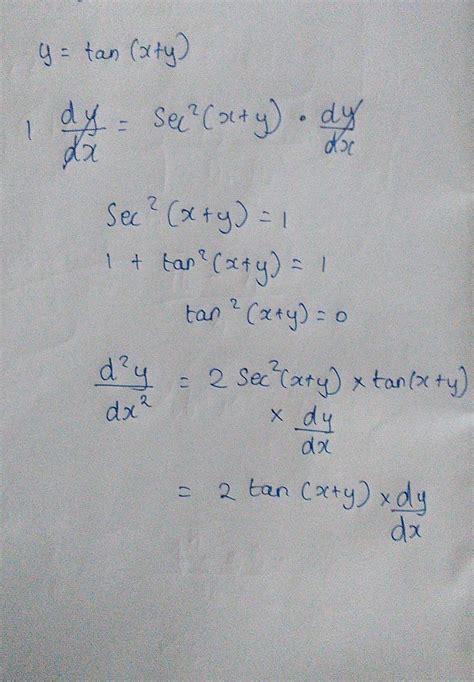 y = tan (x+y)
1 dy/dx = Sec²(x+y) • dy/dx
Sec²(x+y) = 1
1 + tan²(x+y) = 1
tan²(x+y) = 0
d²y/dx² = 2 Sec²(x+y) × tan(x+y)
× dy/dx
= 2 tan (x+y) × dy/dx